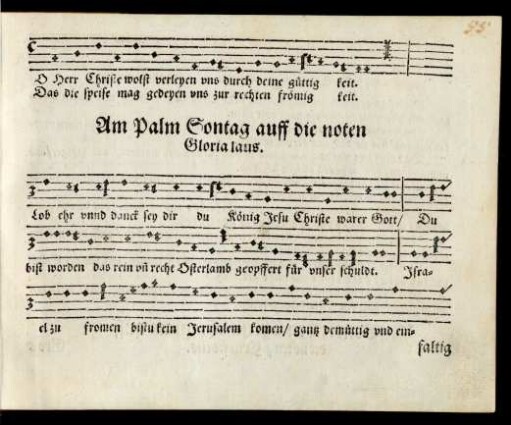 55
O Herr Christe wolst verleyen vns durch deine güttig keit.
Das die speise mag gedeyen vns zur rechten frömig keit.
Am Palm Sontag auff die noten
Gloria laus.
Lob ehr vnnd danck sey dir du König Jesu Christe warer Gott/ Du
bist worden das rein vñ recht Osterlamb geopffert für vnser schuldt. Isra-
el zu fromen bistu kein Jerusalem komen/ gantz demüttig vnd ein-
faltig